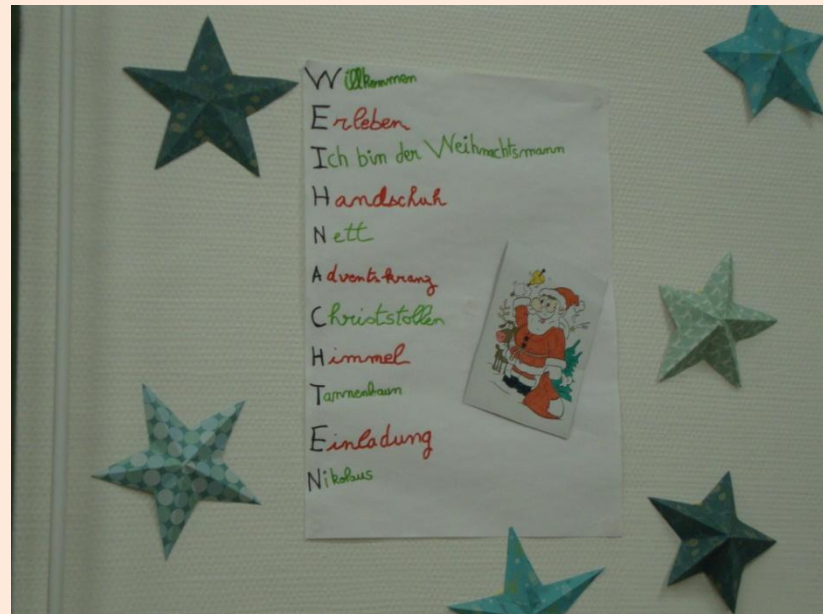 Willkommen
Erleben
Ich bin der Weihnachtsmann
Handschuh
Nett
Adventskranz
Christstollen
Himmel
Tannenbaum
Einladung
Nikolaus